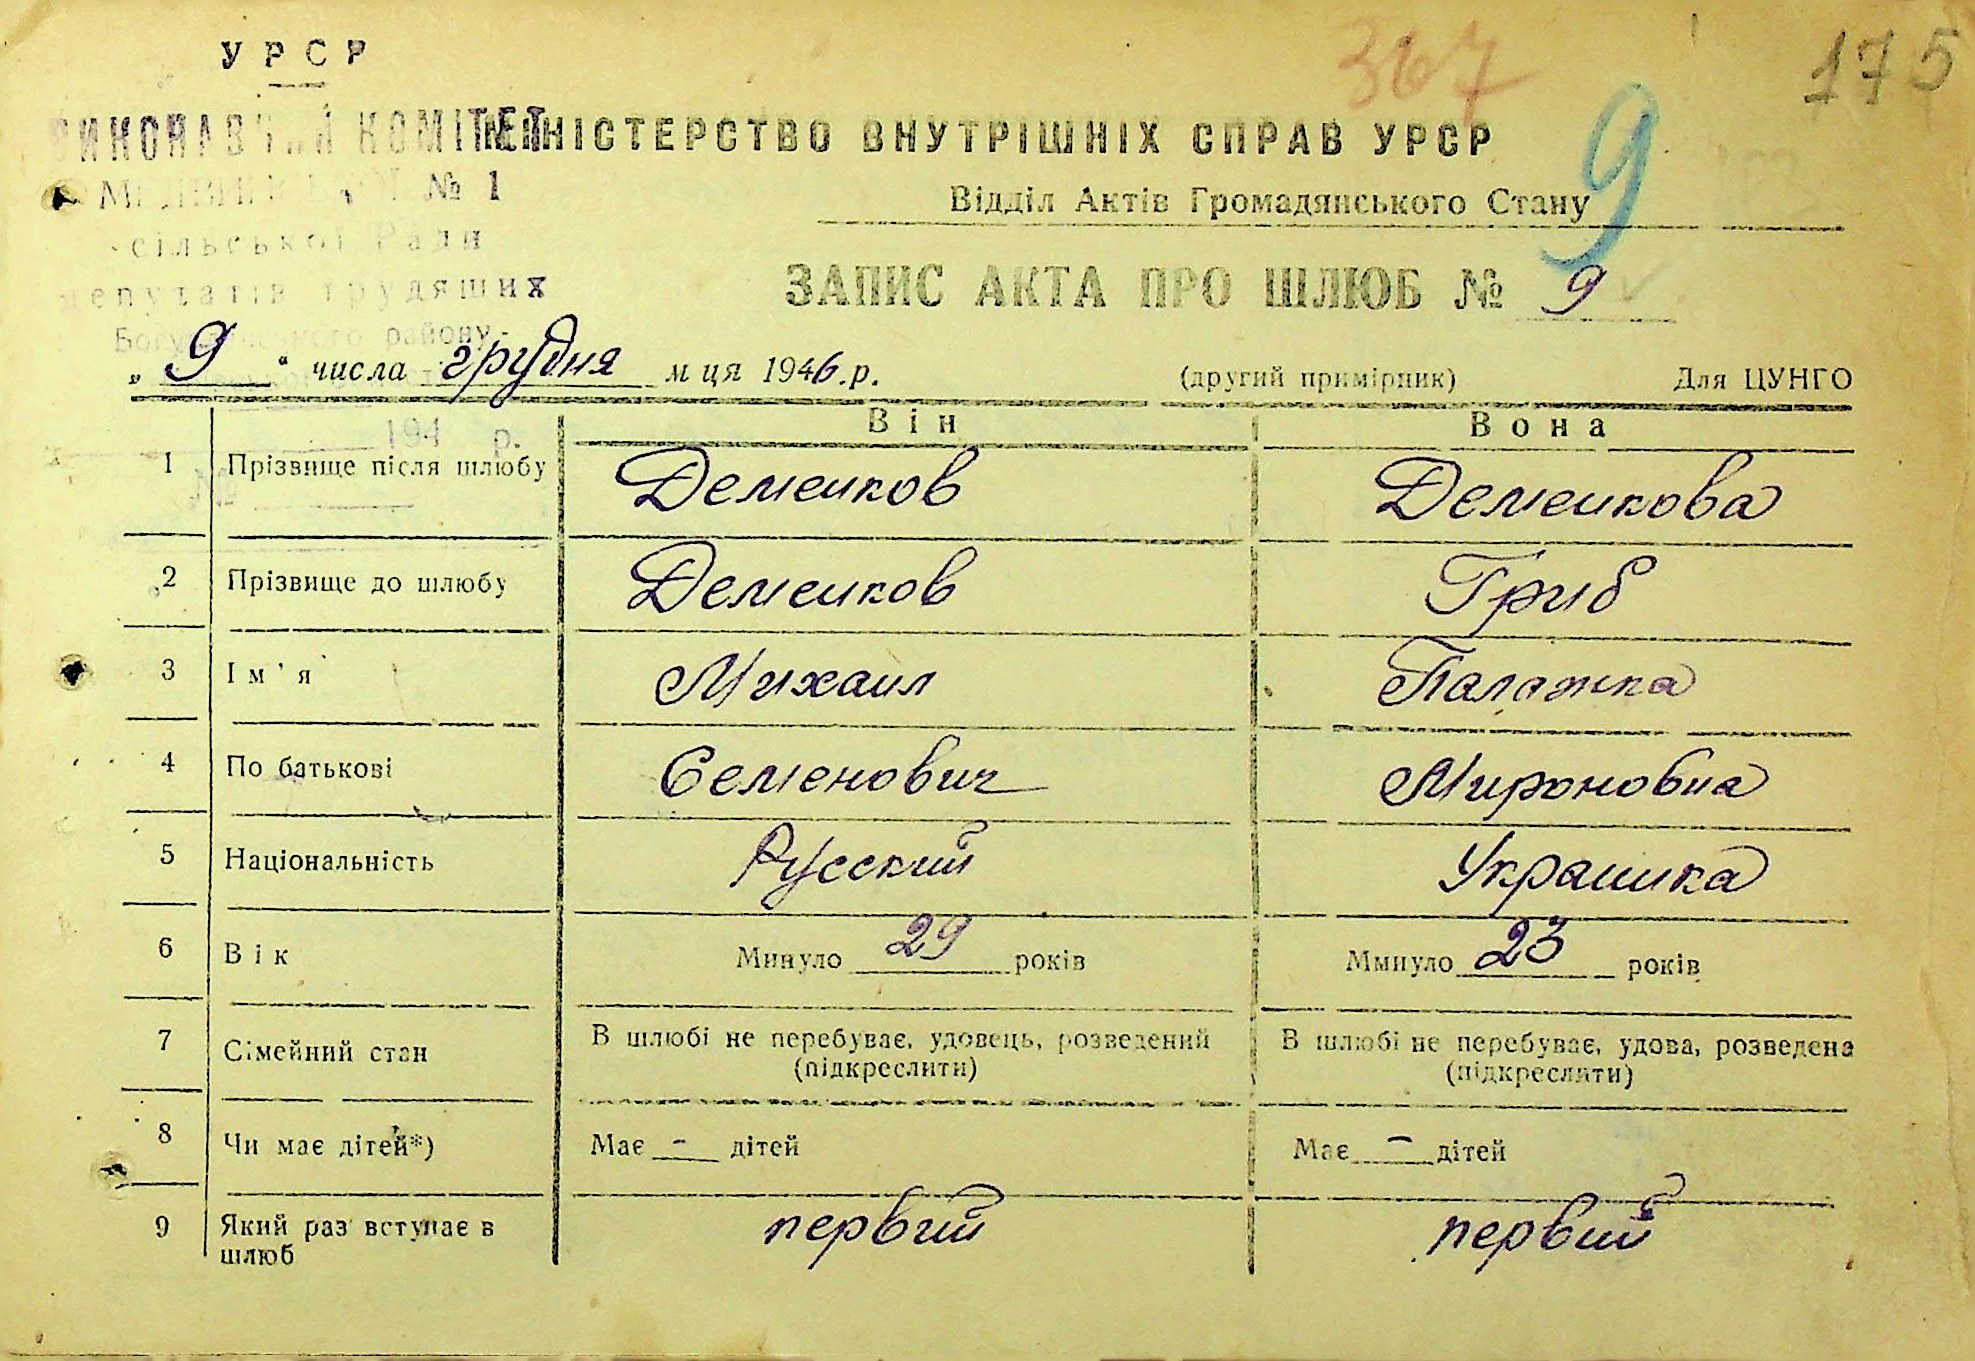 367
175
УРСР
ВИКОНАВЧИЙ КОМІТЕТ
МІНІСТЕРСТВО ВНУТРІШНІХ СПРАВ УРСР
№ 1
Відділ Актів Громадянського Стану
9
сільської Ради
депутатів трудящих
ЗАПИС АКТА ПРО ШЛЮБ № 9
району
„ 9 “ числа грудня м ця 1946.р.
(другий примірник) Для ЦУНГО
194 р.
Він Вона
1 Прізвище після шлюбу Демешков Демешкова
2 Прізвище до шлюбу Демешков Гриб
3 Ім'я Михаил Палажка
4 По батькові Семенович Мироновна
5 Національність Русский Украинка
6 Вік Минуло 29 років Ммнуло 23 років
7 Сімейний стан В шлюбі не перебуває, удовець, розведений В шлюбі не перебуває, удова, розведена
(підкреслити) (підкреслити)
8 Чи має дітей*) Має - дітей Має - дітей
9 Який раз вступає в первий первий
шлюб